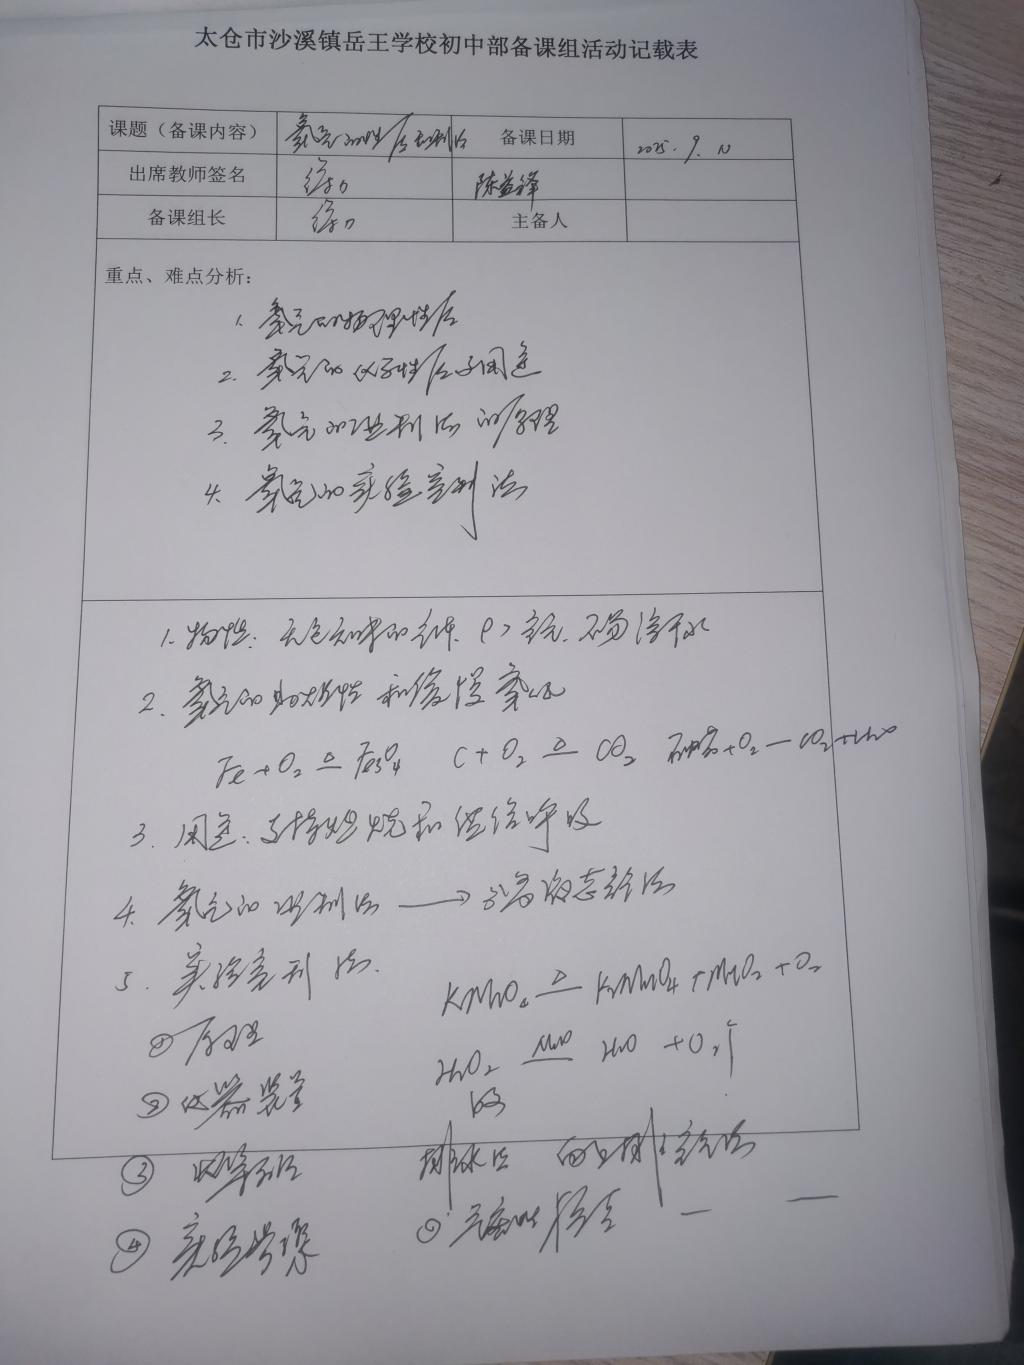 太仓市沙溪镇岳王学校初中部备课组活动记载表
课题（备课内容） 氧气的性质和制法 备课日期 2025.9.
出席教师签名 陈益锋
备课组长 主备人
重点、难点分析：
1. 氧气的物理性质
2. 氧气的化学性质及用途
3. 氧气的工业制法的原理
4. 氧气的实验室制法
1. 物性：无色无味的气体. ρ>空气. 不易溶于水
2. 氧气的助燃性和缓慢氧化
Fe+O2 △ Fe3O4 C+O2 △ CO2 石蜡+O2—CO2+H2O
3. 用途：支持燃烧和供给呼吸
4. 氧气的工业制法 → 分离液态空气法
5. 实验室制法.
① 原理 KMnO4 △ K2MnO4+MnO2+O2
H2O2 MnO2 H2O+O2↑
② 仪器装置
③ 收集方法 排水法 向上排空气法
④ 实验步骤 ① 气密性检查 — —